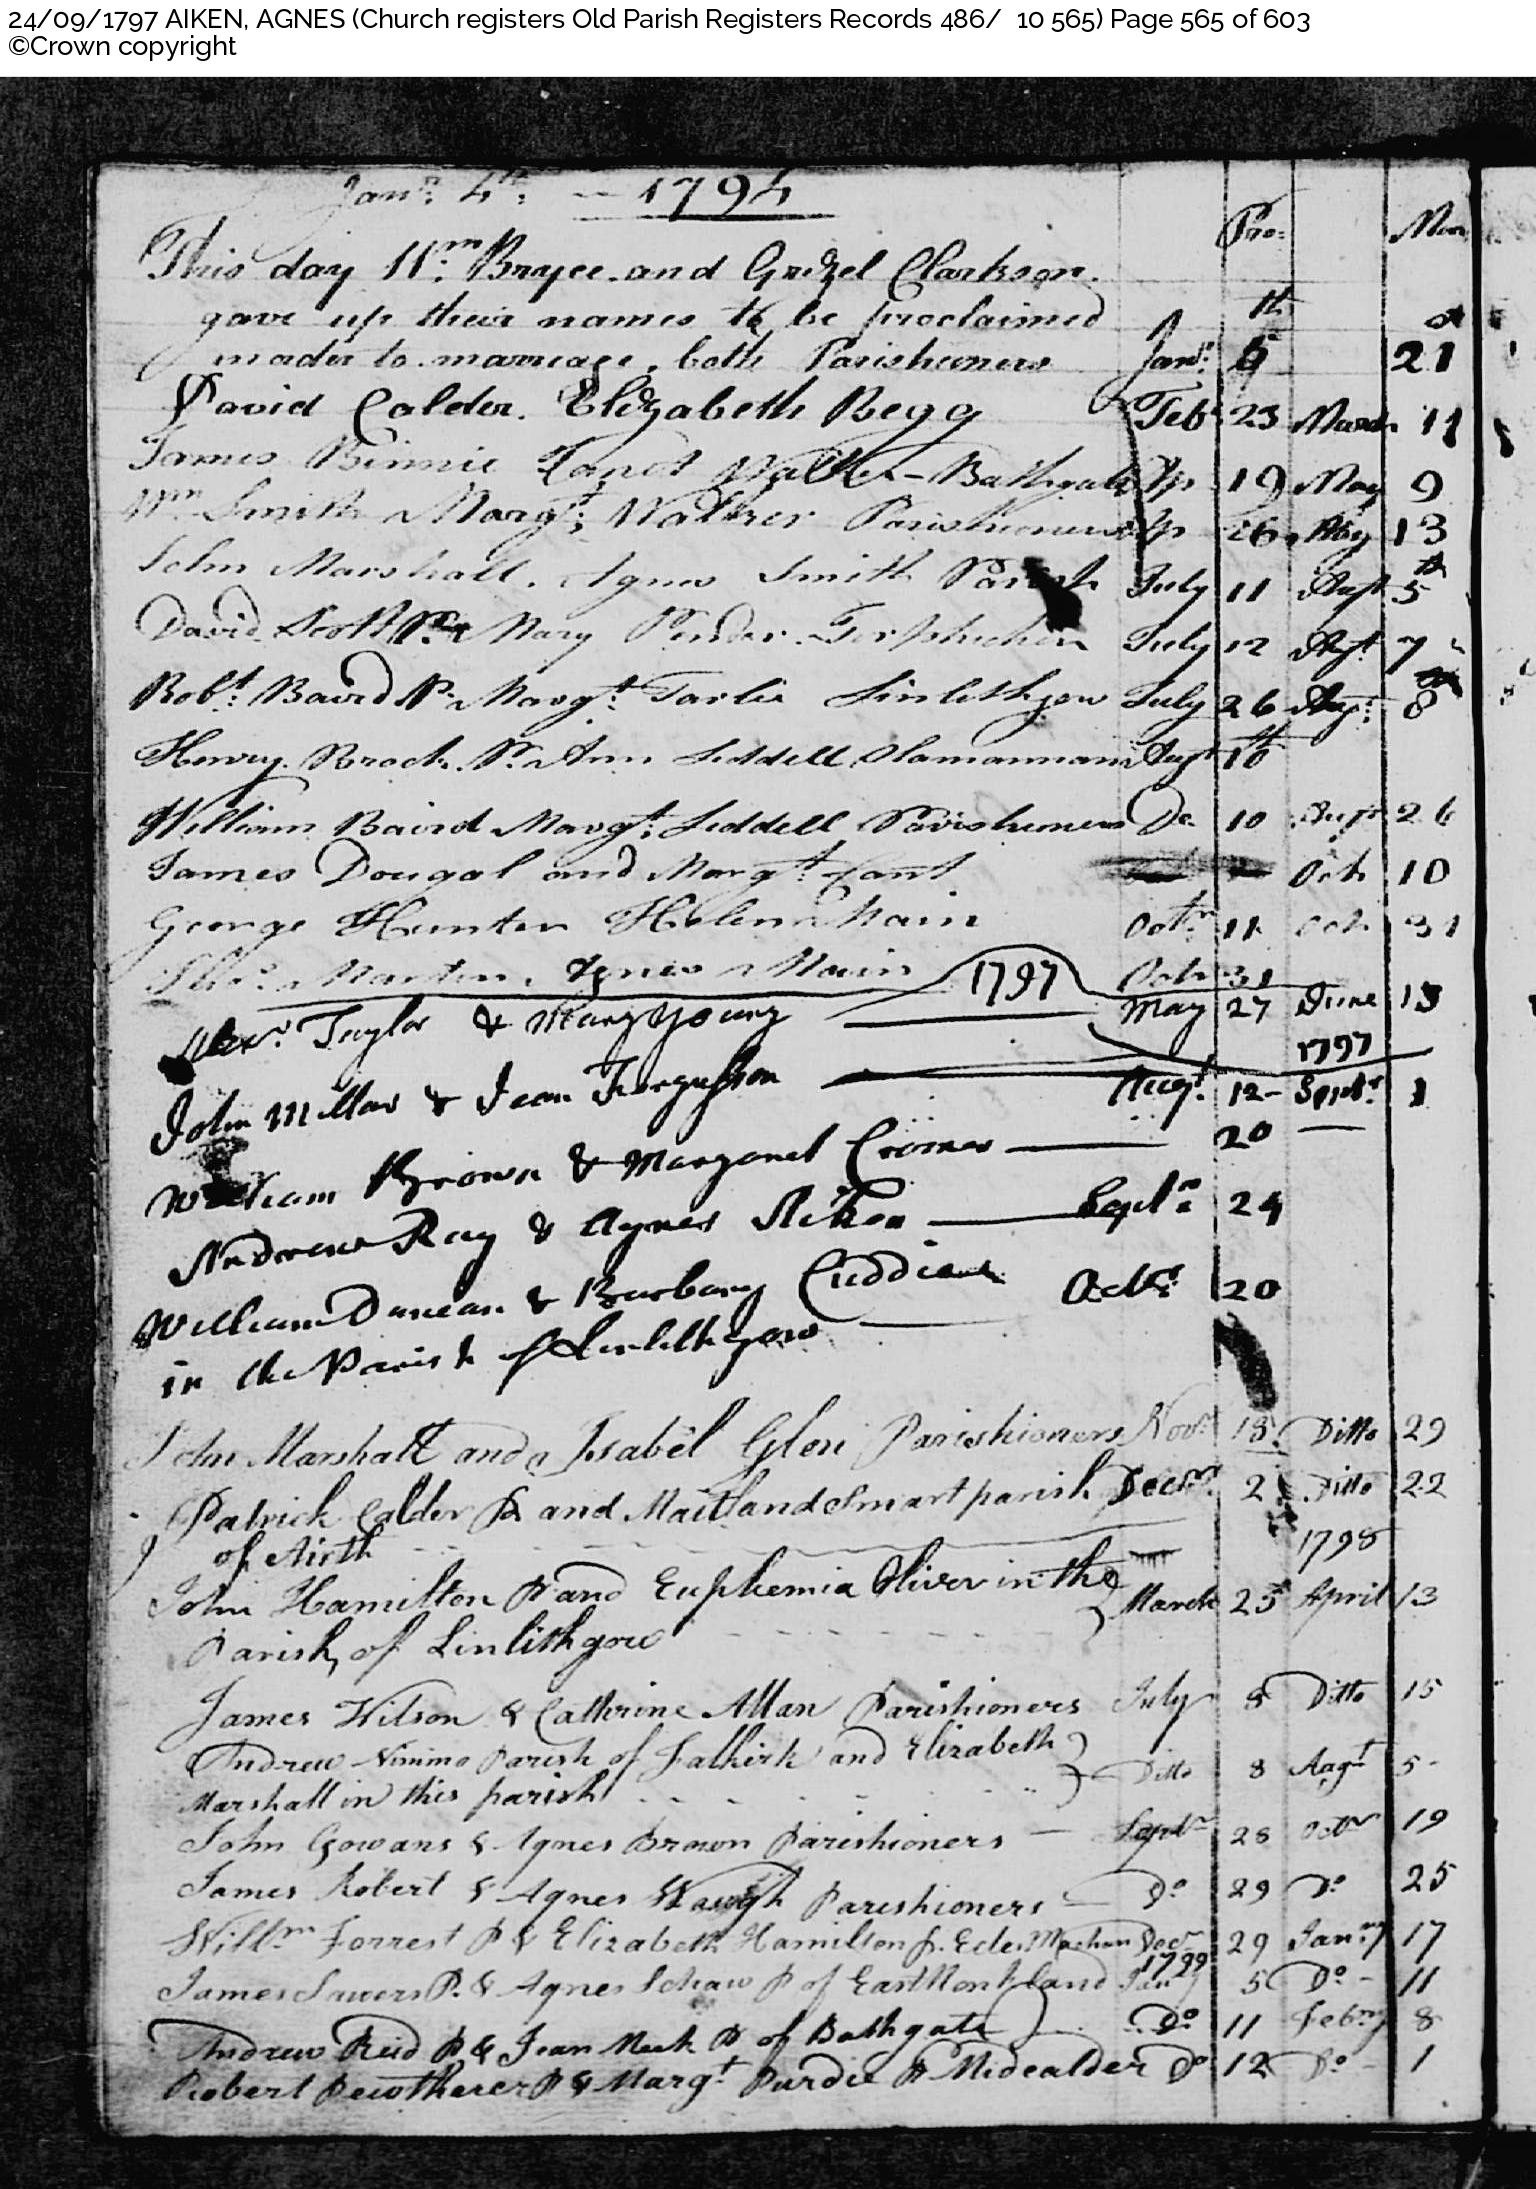 24/09/1797 AIKEN, AGNES (Church registers Old Parish Registers Records 486/ 10 565) Page 565 of 603
©Crown copyright
Janry 4th: — 1794
Pro: Mar
This day Wm: Bryce and Grizel Clarkson
gave up their names to be proclaimed
in order to marriage, both Parishioners Janr: 5th 21
David Calder. Elizabeth Begg Feb 23 March 11
James Binnie Janet Walker - Bathgate Ap 19 May 9
Wm Smith Margt: Walker Parishioners Ap 26 May 13
John Marshall. Agnes Smith Parish July 11 Augt 5th
David Scott Pr Mary Pender Torphichen July 12 Augt 7
Robt: Baird Pr Margt: Tarlie Linlithgow July 26 Augt: 8
Henry Brock Pr Ann Liddell Slamannan Augt 10th
William Baird Margt: Liddell Parishioners Do 10 Augt 26
James Dougal and Margt: Cant Octr 10
George Hunter Helen Main Octr 11 Octr 31
Thos. Martin. Agnes Main Octr 31
1797
Alexr. Taylor & Mary Young May 27 June 13
1797
John Millar & Jean Fergusson Augt: 12 - Septr: 1
William Brown & Margaret Croner 20 —
Andrew Ray & Agnes Aiken Septr 24
William Duncan & Barbary Cuddie Octr: 20
in the Parish of Linlithgow
John Marshall and Isabel Glen Parishioners Novr 18 Ditto 29
Patrick Calder P and Maitland Smart parish Decmr 2 Ditto 22
of Airth 1798
John Hamilton P and Euphemia Oliver in the March 25 April 13
Parish of Linlithgow
James Wilson & Cathrine Allan Parishioners July 8 Ditto 15
Andrew Nimmo Parish of Falkirk and Elizabeth
Marshall in this parish Ditto 8 Augt 5
John Gowans & Agnes Brown Parishioners Septr 28 Octr 19
James Robert & Agnes Waugh Parishioners Do 29 Do 25
Willm Forrest P & Elizabeth Hamilton Decr 29 Janry 17
1799
James Sawers P. & Agnes Schaw P of East Jany 5 Do - 11
Andrew Reid P & Jean Meek P of Bathgate Do 11 Febry 8
Robert Pewtherer P & Margt Purdie P Midcalder Do 12 Do - 1